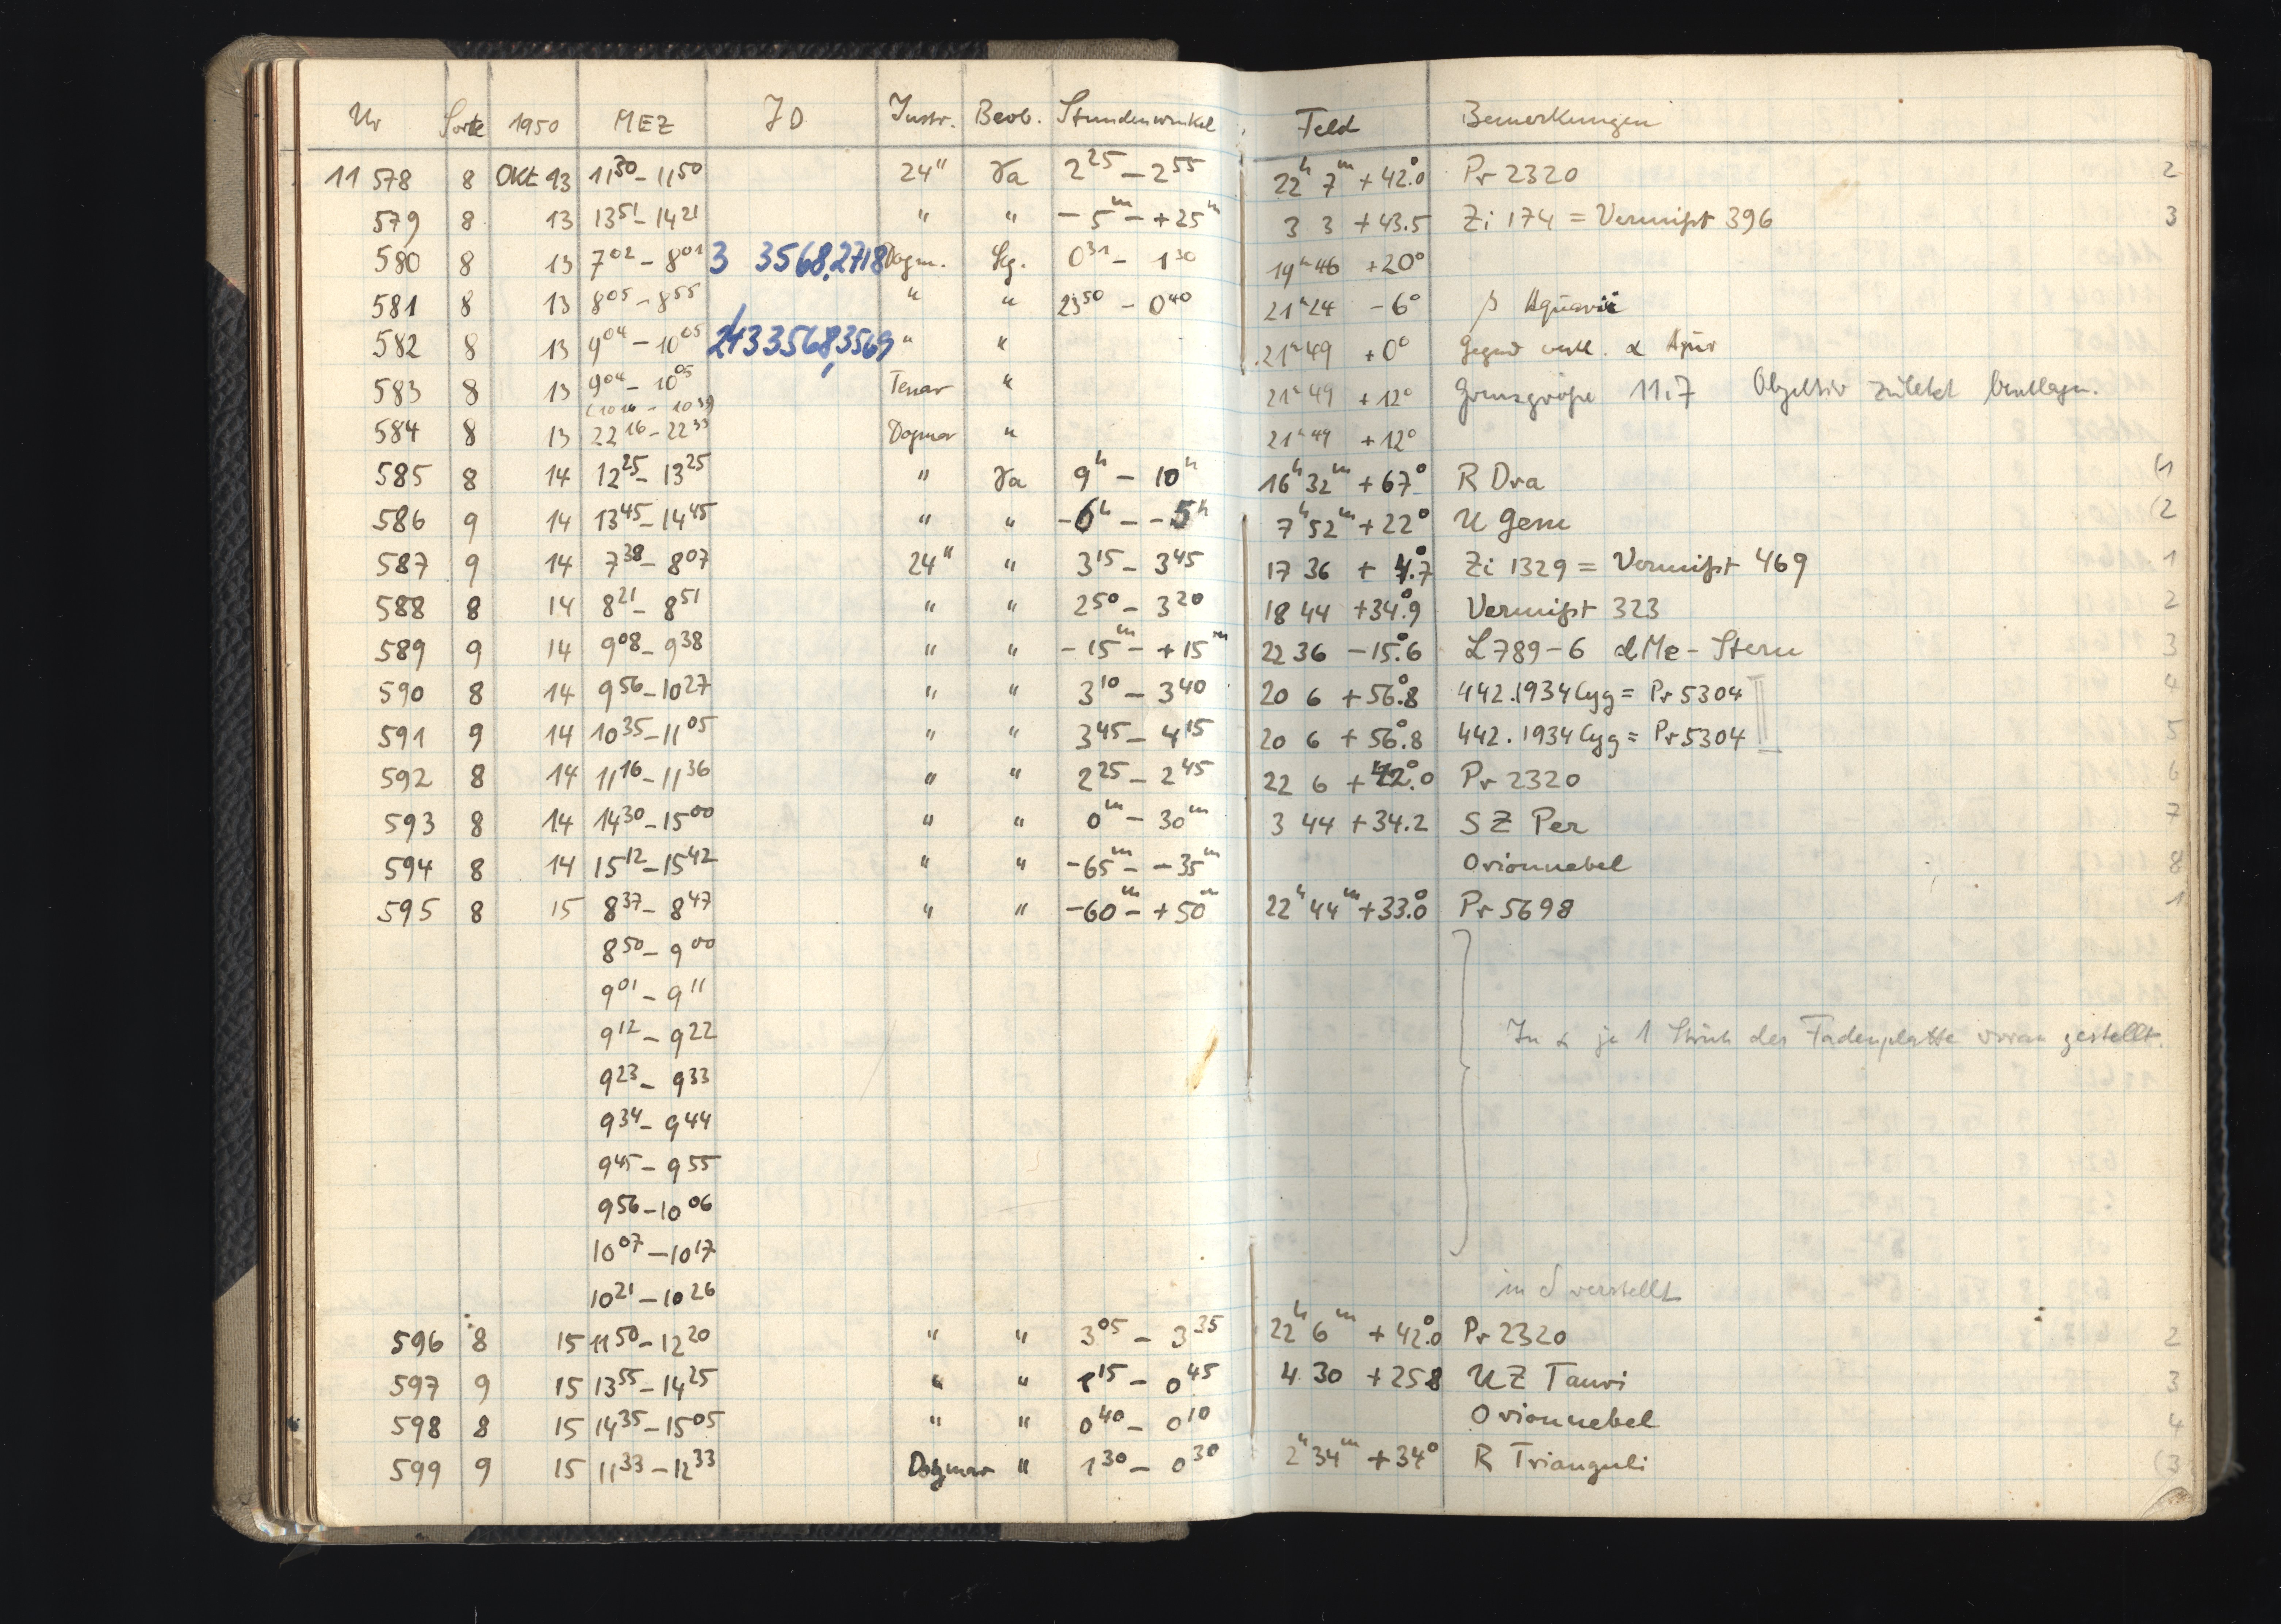 Nr Sorte 1950 MEZ JD Instr. Beob. Stundenwinkel Feld Bemerkungen
11 578 8 Okt 13 11³⁰ – 11⁵⁰ 24" Ta 2²⁵ – 2⁵⁵ 22ʰ 7ᵐ + 42.°0 Pr 2320 2
579 8 13 13⁵¹ – 14²¹ " " – 5ᵐ – + 25ᵐ 3 3 + 43.5 Zi 174 = Vermißt 396 3
580 8 13 7⁰² – 8⁰¹ 3 3568,2718 Dogm. 0³¹ – 1³⁰ 19ʰ 46 +20°
581 8 13 8⁰⁵ – 8⁵⁵ " " 23⁵⁰ – 0⁴⁰ 21ʰ 24 – 6° β Aquarii
582 8 13 9⁰⁴ – 10⁰⁵ 2433568,3569 " " 21ʰ 49 + 0° Gegend α Aqur
583 8 13 9⁰⁴ – 10⁰⁵ Tessar " 21ʰ 49 + 12° Grenzgröße 11.7 Objektiv zuletzt beschlagen.
(10¹⁶ – 10³⁹)
584 8 13 22¹⁶ – 22³³ Dogmar " 21ʰ 49 + 12°
585 8 14 12²⁵ – 13²⁵ " Ta 9ʰ – 10ʰ 16ʰ 32ᵐ + 67° R Dra (1
586 9 14 13⁴⁵ – 14⁴⁵ " " – 6ʰ – – 5ʰ 7ʰ 52ᵐ + 22° U Gem (2
587 9 14 7³⁸ – 8⁰⁷ 24" " 3¹⁵ – 3⁴⁵ 17 36 + 4.°7 Zi 1329 = Vermißt 469 1
588 8 14 8²¹ – 8⁵¹ " " 2⁵⁰ – 3²⁰ 18 44 +34.°9 Vermißt 323 2
589 9 14 9⁰⁸ – 9³⁸ " " – 15ᵐ – + 15ᵐ 22 36 – 15.°6 L 789-6 dMe-Stern 3
590 8 14 9⁵⁶ – 10²⁷ " " 3¹⁰ – 3⁴⁰ 20 6 + 56.°8 442.1934 Cyg = Pr 5304 4
591 9 14 10³⁵ – 11⁰⁵ " " 3⁴⁵ – 4¹⁵ 20 6 + 56.°8 442.1934 Cyg = Pr 5304 5
592 8 14 11¹⁶ – 11³⁶ " " 2²⁵ – 2⁴⁵ 22 6 + 42.°0 Pr 2320 6
593 8 14 14³⁰ – 15⁰⁰ " " 0ᵐ – 30ᵐ 3 44 + 34.2 SZ Per 7
594 8 14 15¹² – 15⁴² " " – 65ᵐ – – 35ᵐ Orionnebel 8
595 8 15 8³⁷ – 8⁴⁷ " " – 60ᵐ – + 50ᵐ 22ʰ 44ᵐ + 33.°0 Pr 5698 1
8⁵⁰ – 9⁰⁰
9⁰¹ – 9¹¹
9¹² – 9²² In α je 1 Strich der Fadenplatte voran gestellt.
9²³ – 9³³
9³⁴ – 9⁴⁴
9⁴⁵ – 9⁵⁵
9⁵⁶ – 10⁰⁶
10⁰⁷ – 10¹⁷
10²¹ – 10²⁶ in δ verstellt
596 8 15 11⁵⁰ – 12²⁰ " " 3⁰⁵ – 3³⁵ 22ʰ 6ᵐ + 42.°0 Pr 2320 2
597 9 15 13⁵⁵ – 14²⁵ " " 0⁴⁵ 4 30 + 25 8 UZ Tauri 3
598 8 15 14³⁵ – 15⁰⁵ " " 0⁴⁰ – 0¹⁰ Orionnebel 4
599 9 15 11³³ – 12³³ Dogmar " 1³⁰ – 0³⁰ 2ʰ 34ᵐ + 34° R Trianguli (3